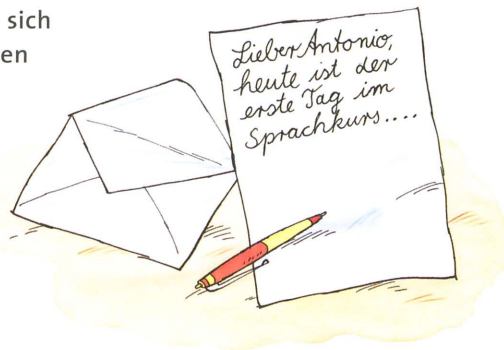 sich
en
Lieber Antonio,
heute ist der
erste Tag im
Sprachkurs....